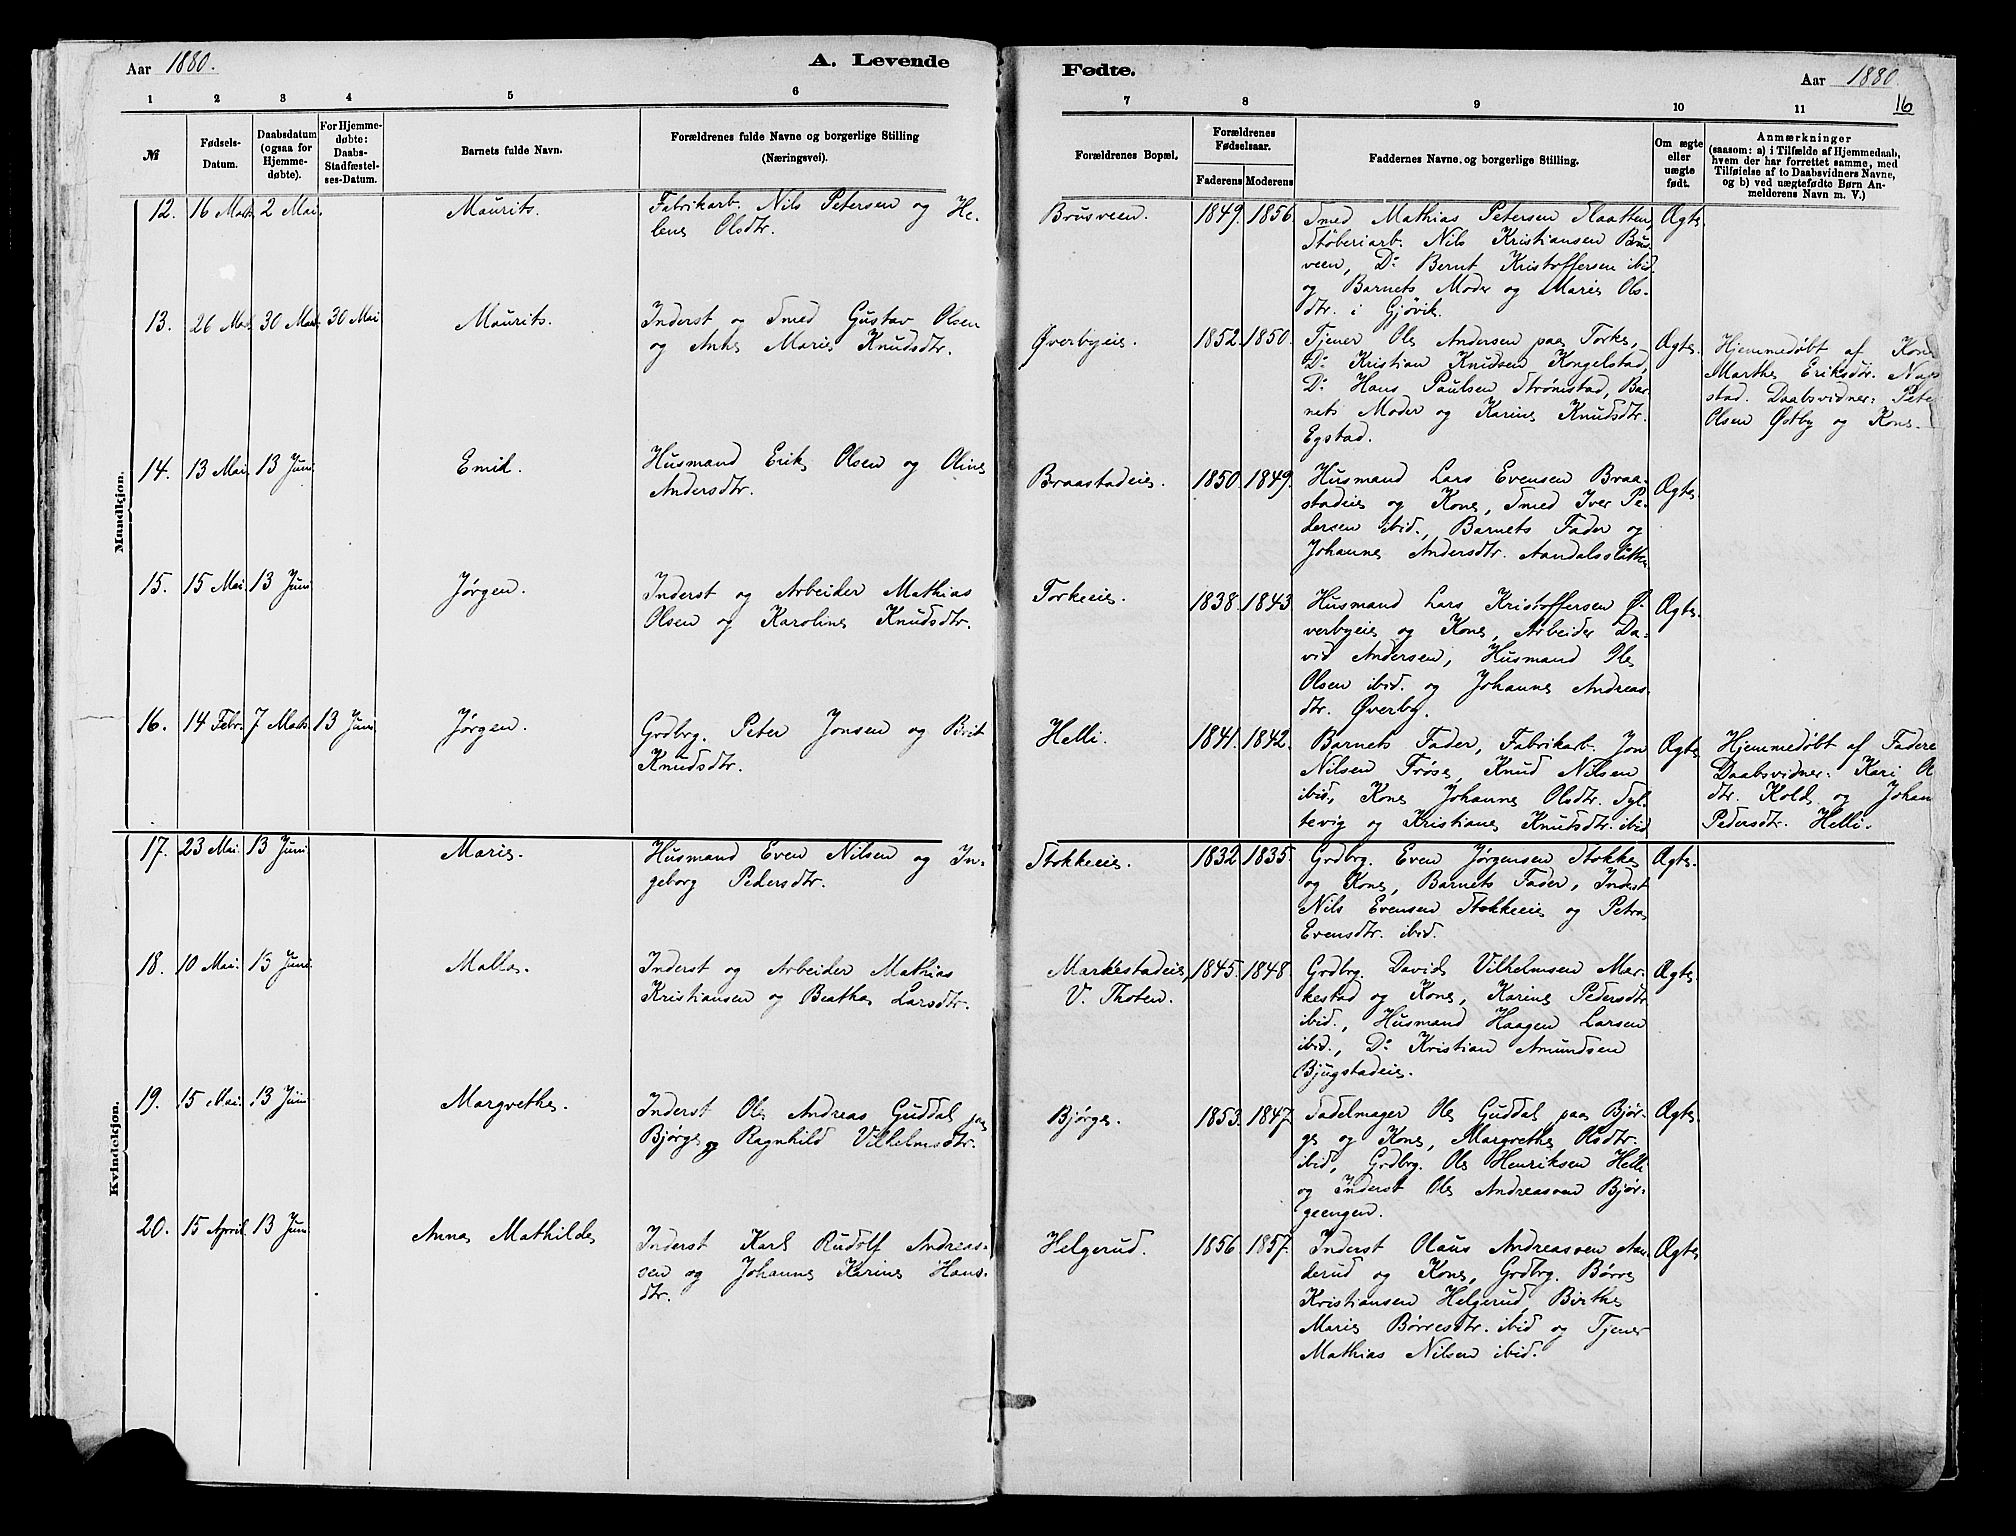 Aar 1880.
A. Levende
Fødte.
Aar 1880
16
1 2 3 4 5 6
7 8 9 10 11
№
Fødsels-
Datum.
Daabsdatum
(ogsaa for
Hjemme-
døbte).
For Hjemme-
døbte:
Daabs-
Stadfæstel-
ses-Datum.
Barnets fulde Navn.
Forældrenes fulde Navne og borgerlige Stilling
(Næringsvei).
Forældrenes Bopæl.
Forældrenes
Fødselsaar.
Faderens Moderens
Faddernes Navne og borgerlige Stilling.
Om ægte
eller
uægte
født.
Anmærkninger
(saasom: a) i Tilfælde af Hjemmedaab,
hvem der har forrettet samme, med
Tilføielse af to Daabsvidners Navne,
og b) ved uægtefødte Børn An-
melderens Navn m. V.)
Mandkjøn.
12. 2 Mai. Maurits.
Fabrikarb. Nils Petersen og He-
lene Olsdtr.
Brusveen. 1849. 1856.
Smed Mathias Petersen Slaatten,
Støberiarb. Nils Kristiansen Brus-
veen, Do Bernt Kristoffersen ibid.
og Barnets Moder og Marie Ols-
dtr. i Gjøvik.
Ægte.
13. 30 Mai Maurits.
Inderst og Smed Gustav Olsen
og Anne Marie Knudsdtr.
Øverbyeie. 1852. 1850.
Tjener Ole Andersen paa Torke,
Do Kristian Knudsen Kongelstad,
Do Hans Paulsen Strømstad, Bar-
nets Moder og Karine Knudsdtr.
Egstad.
Ægte.
Hjemmedøbt af Kone
Marthe Eriksdtr.
stad. Daabsvidner: Pete
Olsen Østby og Kone.
14. 13 Mai. 13 Juni. Emil.
Husmand Erik Olsen og Oline
Andersdtr.
Braastadeie. 1850. 1849.
Husmand Lars Evensen Braa-
stadeie og Kone, Smed Iver Pe-
dersen ibid., Barnets Fader og
Johanne Andersdtr. Aandalsslåtten
Ægte
15. 15 Mai. 13 Juni Jørgen.
Inderst og Arbeider Mathias
Olsen og Karoline Knudsdtr.
Torkeeie. 1838. 1843.
Husmand Lars Kristoffersen Ø-
verbyeie og Kone, Arbeider Da-
vid Andersen, Husmand Ole
Olsen ibid. og Johanne Andreas-
dtr. Øverby.
Ægte.
16. 14 Febr. 7 Mats. 13 Juni Jørgen.
Grdbrg. Peter Jonsen og Brit
Knudsdtr.
Helli. 1841. 1842.
Barnets Fader, Fabrikarb. Jon
Nilsen Trøse, Knud Nilsen
ibid., Kone Johanne Olsdtr. Syl-
tevig og Kristiane Knutsdtr. ibid
Ægte
Hjemmedøbt af Fadere
Daabsvidner: Kari O
dtr. Kold og Johan
Pedersdtr. Helli.
Kvindekjøn.
17. 23 Mai. 13 Juni Marie.
Husmand Even Nilsen og In-
geborg Pedersdtr.
Stokkeeie. 1832. 1835.
Grdbrg. Even Jørgensen Stokke
og Kone, Barnets Fader, Inderst
Nils Evensen Stokkeeie og Petra
Evensdtr. ibid.
Ægte.
18. 10 Mai. 13 Juni. Malla.
Inderst og Arbeider Mathias
Kristiansen og Beatha Larsdtr.
Markestadeie,
V. Thoten.
1845. 1848.
Grdbrg. David Vilhelmsen Mar-
kestad og Kone, Karine Pedersdtr.
ibid., Husmand Haagen Larsen
ibid., Do Kristian Amundsen
Bjugstadeie.
Ægte.
19. 15 Mai. 13 Juni Margrethe.
Inderst Ole Andreas Guddal paa
Bjørge og Ragnhild Vilhelmsdtr.
Bjørge. 1853. 1847.
Sadelmager Ole Guddal paa Bjør-
ge og Kone, Margrethe Olsdtr.
ibid, Grdbrg. Ole Henriksen Helli
og Inderst Ole Andreassen Bjør-
geengen.
Ægte.
20. 15 April. 13 Juni Anna Mathilde
Inderst Karl Rudolf Andreas-
sen og Johanne Karine Hans-
dtr.
Helgerud. 1856 1857.
Inderst Olaus Andreassen Aan-
derud og Kone, Grdbrg. Børre
Kristiansen Helgerud, Birthe
Marie Børresdtr. ibid og Tjener
Mathias Nilsen ibid.
Ægte